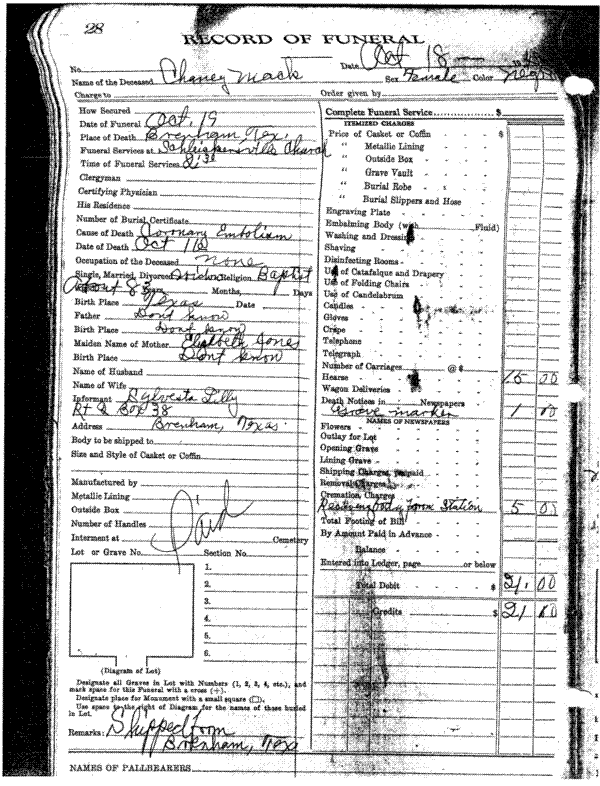 28
RECORD OF FUNERAL
No. Date Oct 18
Name of the Deceased Chaney Mack Sex Female Color
Charge to Order given by
How Secured
Date of Funeral Oct. 19
Place of Death Brenham, Tex.
Funeral Services at Church
Time of Funeral Services
Clergyman
Certifying Physician
His Residence
Number of Burial Certificate
Cause of Death Coronary Embolism
Date of Death Oct 16
Occupation of the Deceased None
Single, Married, Divorced Widow Religion Baptist
About 83 Years, Months, Days
Birth Place Texas Date
Father Dont know
Birth Place Dont know
Maiden Name of Mother Elizabeth Jones
Birth Place Dont know
Name of Husband
Name of Wife
Informant Sylvesta Lilly
Rt 2 Box 38
Address Brenham, Texas.
Body to be shipped to
Size and Style of Casket or Coffin
Manufactured by
Metallic Lining
Outside Box
Number of Handles
Interment at Cemetery
Paid
Lot or Grave No. Section No.
1.
2.
3.
4.
5.
6.
(Diagram of Lot)
Designate all Graves in Lot with Numbers (1, 2, 3, 4, etc.), and
mark space for this Funeral with a cross (+).
Designate place for Monument with a small square (□).
Use space to the right of Diagram for the names of those buried
in Lot.
Remarks: Shipped from
Brenham, Tex
NAMES OF PALLBEARERS
Complete Funeral Service $
ITEMIZED CHARGES
Price of Casket or Coffin $
" Metallic Lining
" Outside Box
" Grave Vault
" Burial Robe
" Burial Slippers and Hose
Engraving Plate
Embalming Body (with Fluid)
Washing and Dressing
Shaving
Disinfecting Rooms
Use of Catafalque and Drapery
Use of Folding Chairs
Use of Candelabrum
Candles
Gloves
Crape
Telephone
Telegraph
Number of Carriages @ $
Hearse 15 00
Wagon Deliveries
Death Notices in Newspapers
Grave marker 1 00
NAMES OF NEWSPAPERS
Flowers
Outlay for Lot
Opening Grave
Lining Grave
Shipping Charges, prepaid
Removal Charges
Cremation Charges
Receiving body from Station 5 00
Total Footing of Bill
By Amount Paid in Advance
Balance
Entered into Ledger, page or below
Total Debit $ 21.00
Credits $ 21 00